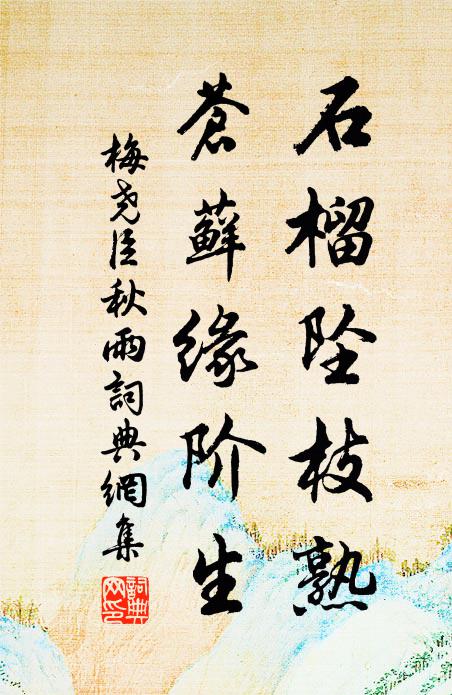 石榴坠枝熟
苍藓缘阶生
梅尧臣秋雨詞典網集
詞典网印